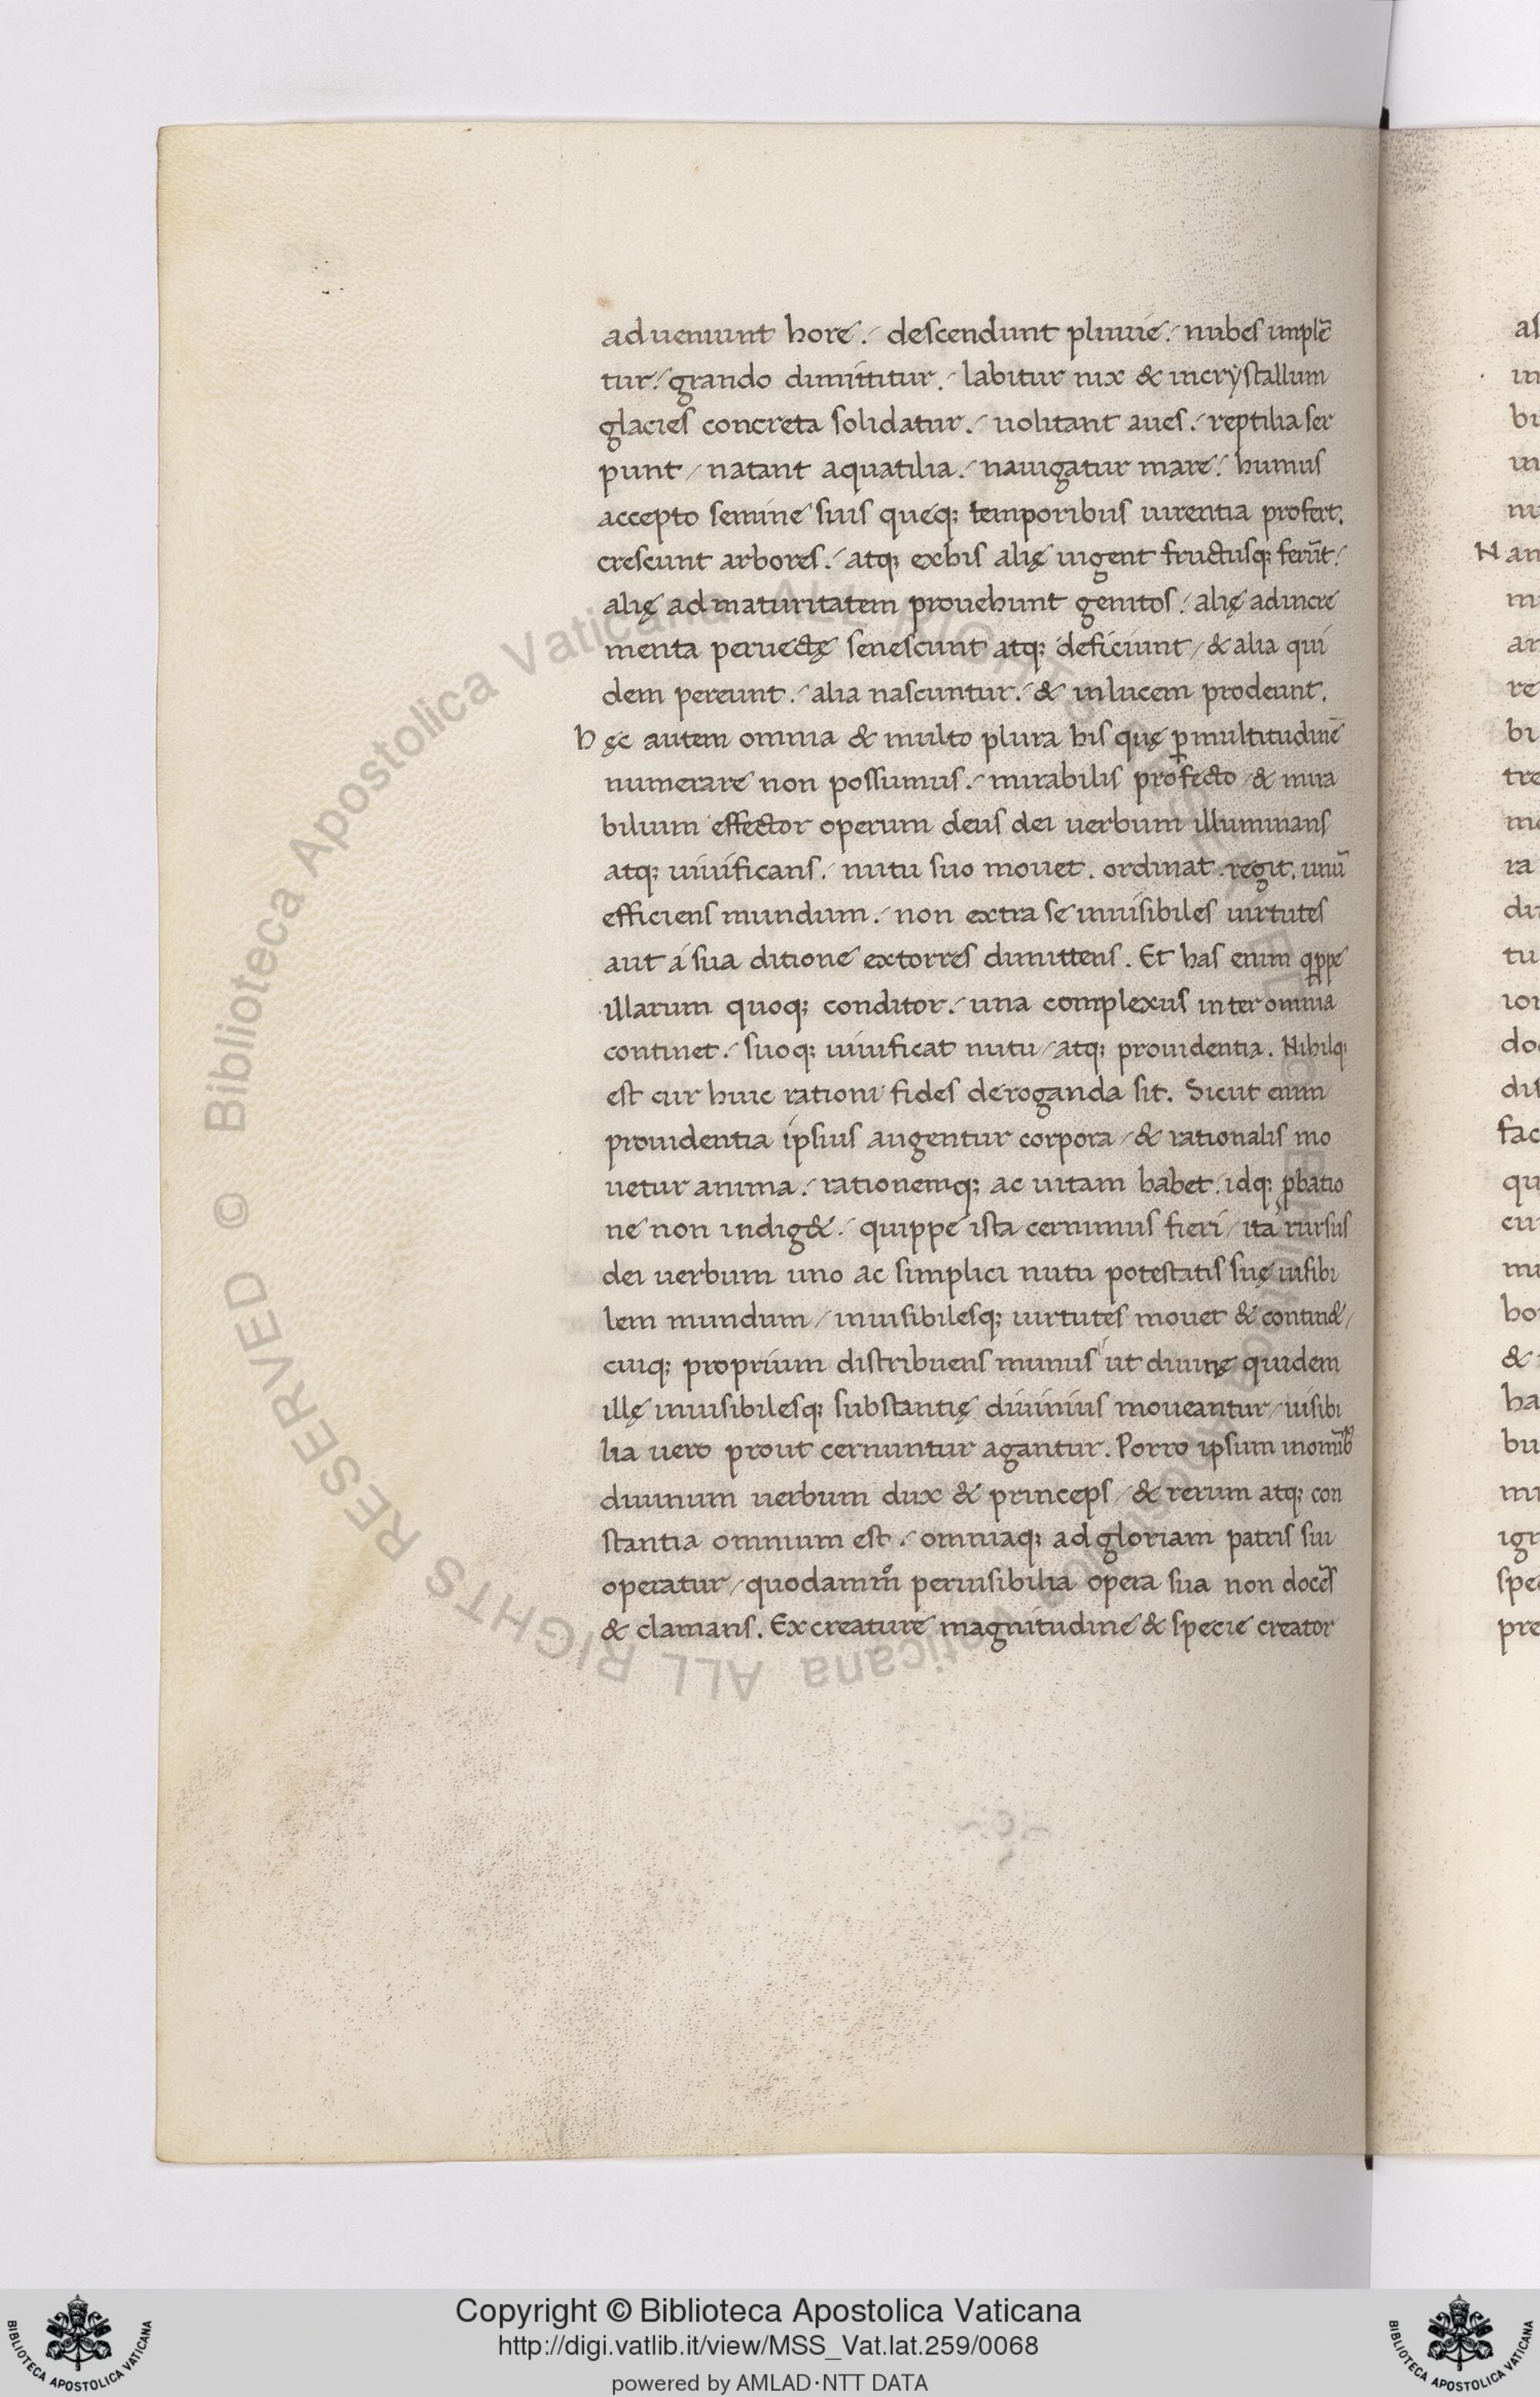 adueniunt hore. descendunt pluuie. nubes implē
tur. grando dimittitur. labitur nix & incrystallum
glacies concreta solidatur. uolitant aues. reptilia ser
punt / natant aquatilia. nauigatur mare. humus
accepto semine suis queq; temporibus uirentia profert.
crescunt arbores. atq; exhis alię uigent fructusq; ferūt.
alię admaturitatem prouehunt genitos. alię adincre
menta peruectę senescunt atq; deficiunt / & alia qui
dem pereunt. alia nascuntur. & inlucem prodeunt.
hęc autem omnia & multo plura his quę ꝑmultitudinē
numerare non possumus. mirabilis profecto / & mira
bilium effector operum deus dei uerbum illuminans
atq; uiuificans. nutu suo mouet. ordinat. regit. unū
efficiens mundum. non extra se inuisibiles uirtutes
aut á sua ditione extorres dimittens. Et has enim qꝑpe
illarum quoq; conditor. una complexus inter omnia
continet. suoq; uiuificat nutu / atq; prouidentia. Nihilq;
est cur huic rationi fides deroganda sit. Sicut enim
prouidentia ipsius augentur corpora / & rationalis mo
uetur anima. rationemq; ac uitam habet. idq; ꝓbatio
ne non indig&. quippe ista cernimus fieri / ita rursus
dei uerbum uno ac simplici nutu potestatis suę uisibi
lem mundum / inuisibilesq; uirtutes mouet & contin& /
cuiq; proprium distribuens munus ut diuinę quidem
illę inuisibilesq; substantię diuinius moueantur / uisibi
lia uero prout cernuntur agantur. Porro ipsum inomīb;
diuinum uerbum dux & princeps / & rerum atq; con
stantia omnium est. omniaq; adgloriam patris sui
operatur / quodammo peruisibilia opera sua non docēs
& clamans. Excreature magnitudine & specie creator
Copyright © Biblioteca Apostolica Vaticana
http://digi.vatlib.it/view/MSS_Vat.lat.259/0068
powered by AMLAD·NTT DATA